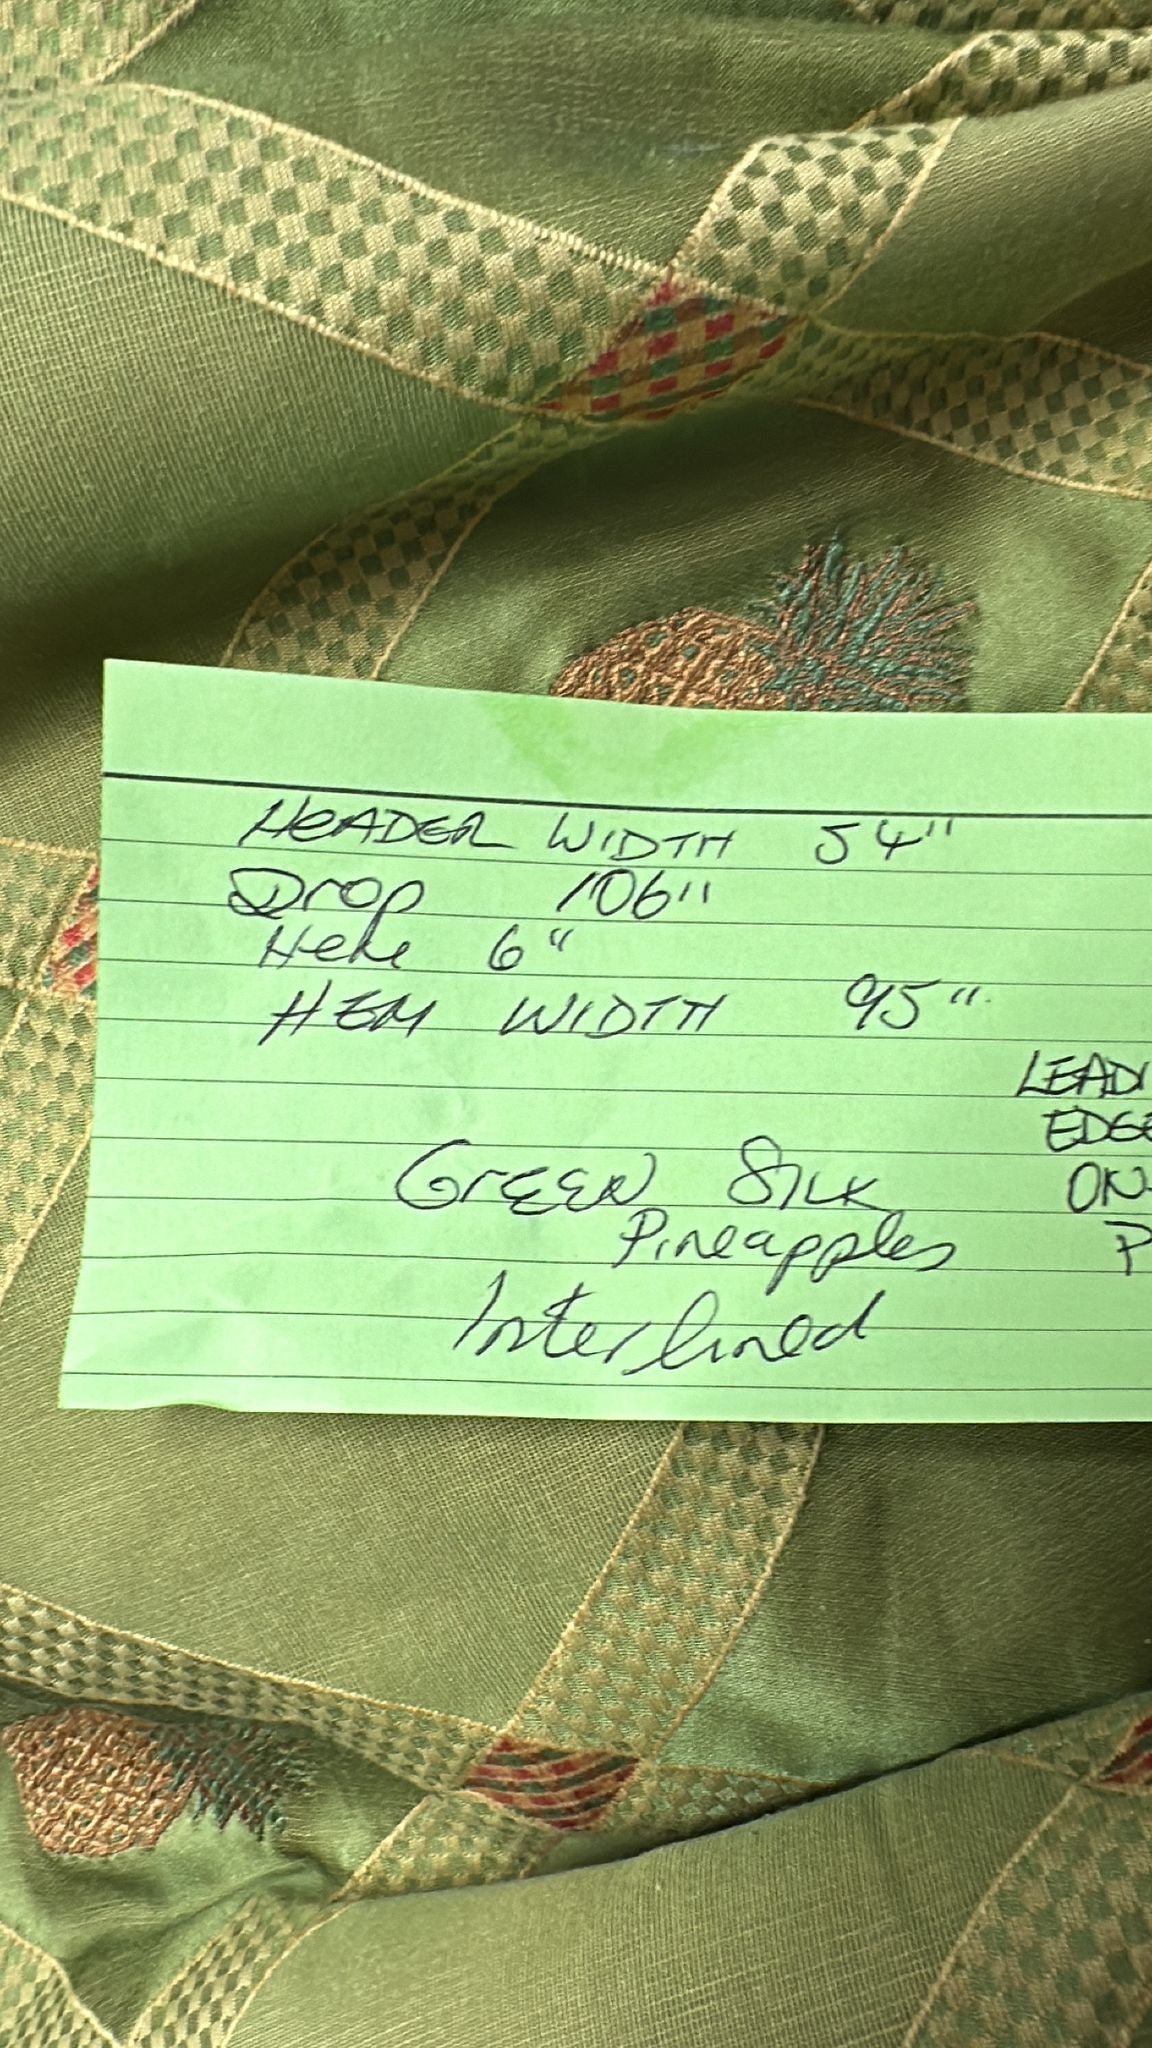 HEADER WIDTH 54"
Drop 106"
Hem 6"
HEM WIDTH 95"
LEADI
EDGE
GREEN SILK ON
Pineapples P
Interlined